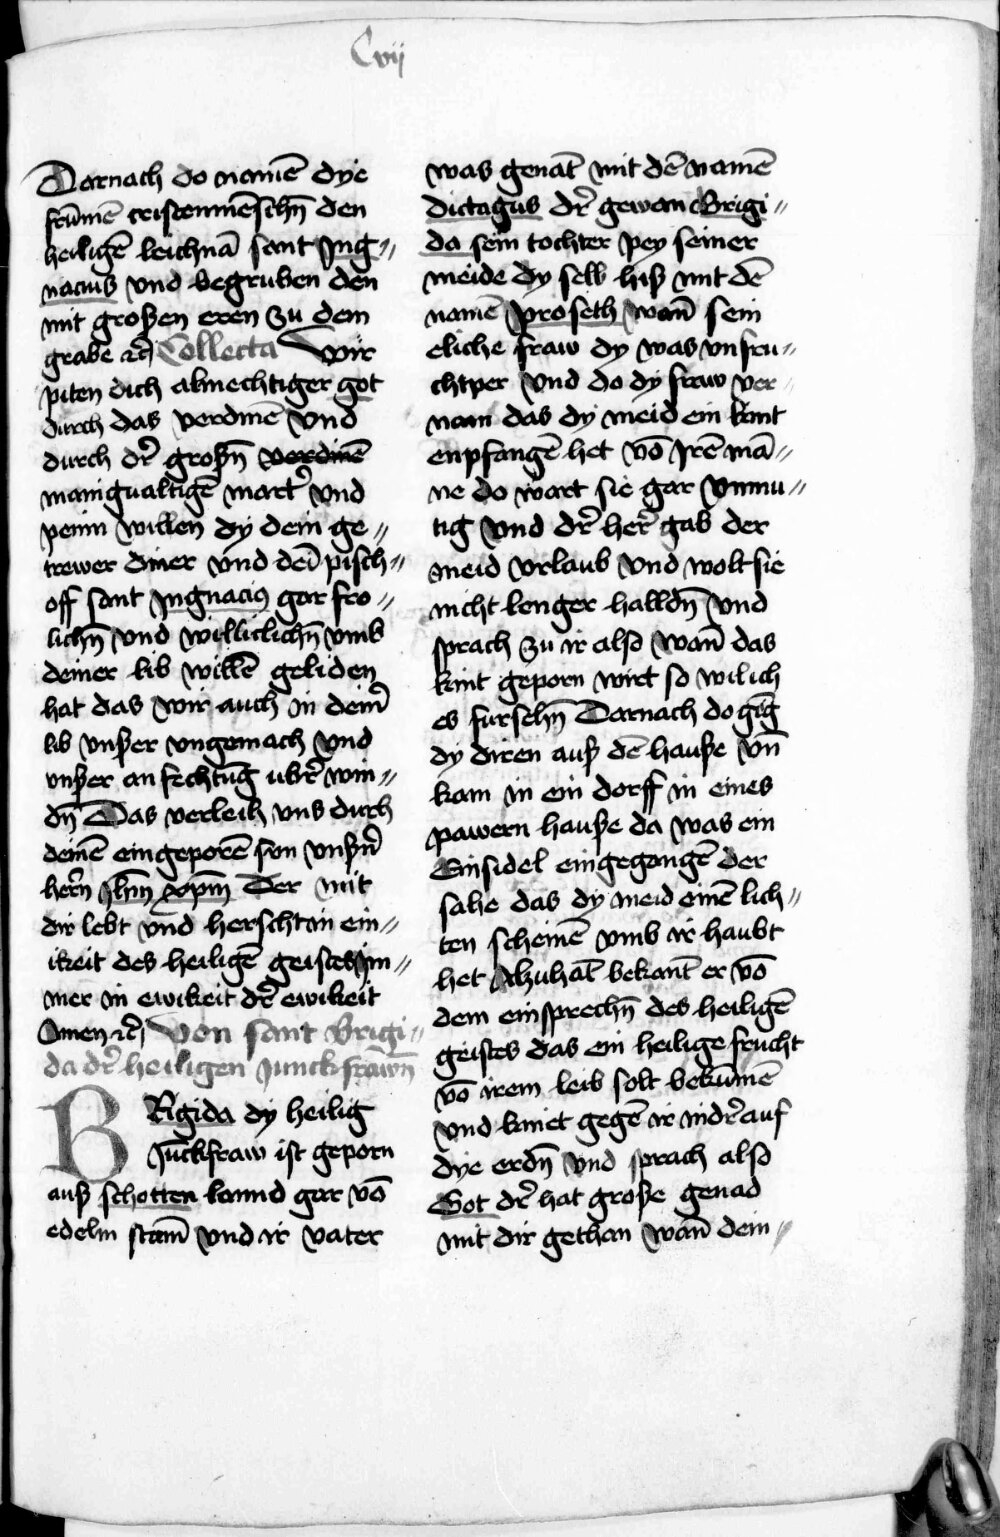 Cvij
Darnach do namē dye
frūmen cristenmēschn̄ den
heiligē leichnā sant Ing⸗
nacius vnd begruben den
mit großen eren zu dem
grabe ꝛc̄ Collecta Wir
piten dich almechtiger got
durch das verdinē vnd
durch dr̄ großn̄ verdinē
manigualtigē mart̄ vnd
peinn willen dy dein ge⸗
trewer diner vnd dei͂ pisch⸗
off sant Ingnaciꝰ gar fro⸗
lichn̄ vnd williclichn̄ vmb
deiner lib willē geliden
hat das wir auch in deim̄
lib vnßer vngemach vnd
vnßer an fechtūg ubr̄ win⸗
dn̄ Das verleih vns durch
deinē eingeporē son vnßn̄
hern̄ Jhm̄ xpm̄ Der mit
dir lebt vnd herscht in ein⸗
ikeit des heiligē geistes im⸗
mer in ewikeit dr̄ ewikeit
Amen ꝛc̄ Von sant Brigi⸗
da dr̄ heiligen Junckfrawn̄
BRigida dy heilig
Jūckfraw ist geporn
auß schotten lannd gar vō
edelm stam̄ vnd ir vater
was genāt mit dē namē
dictagus dr̄ gewan Brigi⸗
da sein tochter pey seiner
meide dy selb hiß mit dē
namē proseth wan̄ sein
eliche fraw dy was vnfru⸗
chtper vnd do dy fraw ver⸗
nam das dy meid ein kint
enpfangē het vō irē mā⸗
ne do wart sie gar vnmu⸗
tig vnd dr̄ her̄ gab der
meid vrlaub vnd wolt sie
nicht lenger halldn̄ vnd
sprach zu ir also wan̄ das
kint geporn wirt so wil ich
es fursehn̄ Darnach do gīg
dy diren auß dē hauße vn̄
kam in ein dorff in eines
pawern hauße da was ein
Einsidel eingegangē der
sahe das dy meid einē lich⸗
ten scheinē vmb ir haubt
het Alzuhāt bekant er vō
dem einsprechn̄ des heiligē
geistes das ein heilige frucht
vō irem leib solt bekūmē
vnd kniet gegē ir nidr̄ auf
dye erdn̄ vnd sprach also
Got dr̄ hat große genad
mit dir gethan wan̄ dein⸗